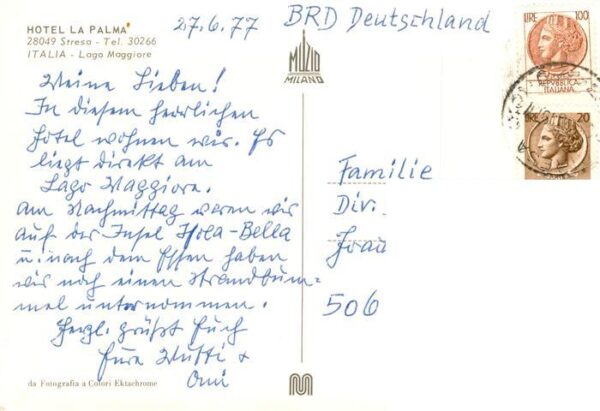 HOTEL LA PALMA
28049 Stresa - Tel. 30266
ITALIA - Lago Maggiore
27.6.77
Meine Lieben!
In diesem herrlichen
Hotel wohnen wir. Es
liegt direkt am
Lago Maggiore.
Am Nachmittag waren wir
auf der Insel Isola-Bella
u. nach dem Essen haben
wir noch einen Strandbum-
mel unternommen.
Herzl. grüßt Euch
Eure Mutti +
Omi
da Fotografia a Colori Ektachrome
MUZIO
MILANO
BRD Deutschland
Familie
Div.
Frau
506
LIRE 100
REPUBBLICA
ITALIANA
LIRE 20